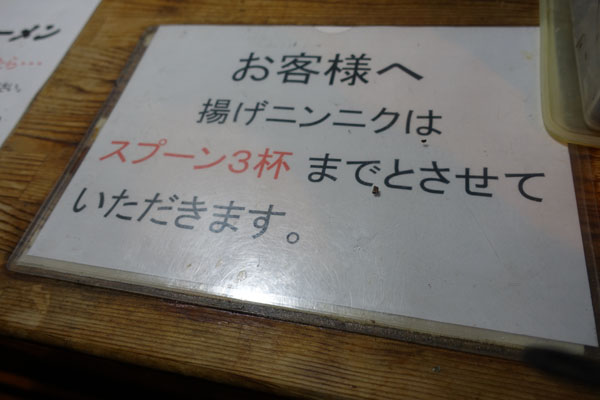 ーメン
お客様へ
揚げニンニクは
スプーン3杯 までとさせて
いただきます。